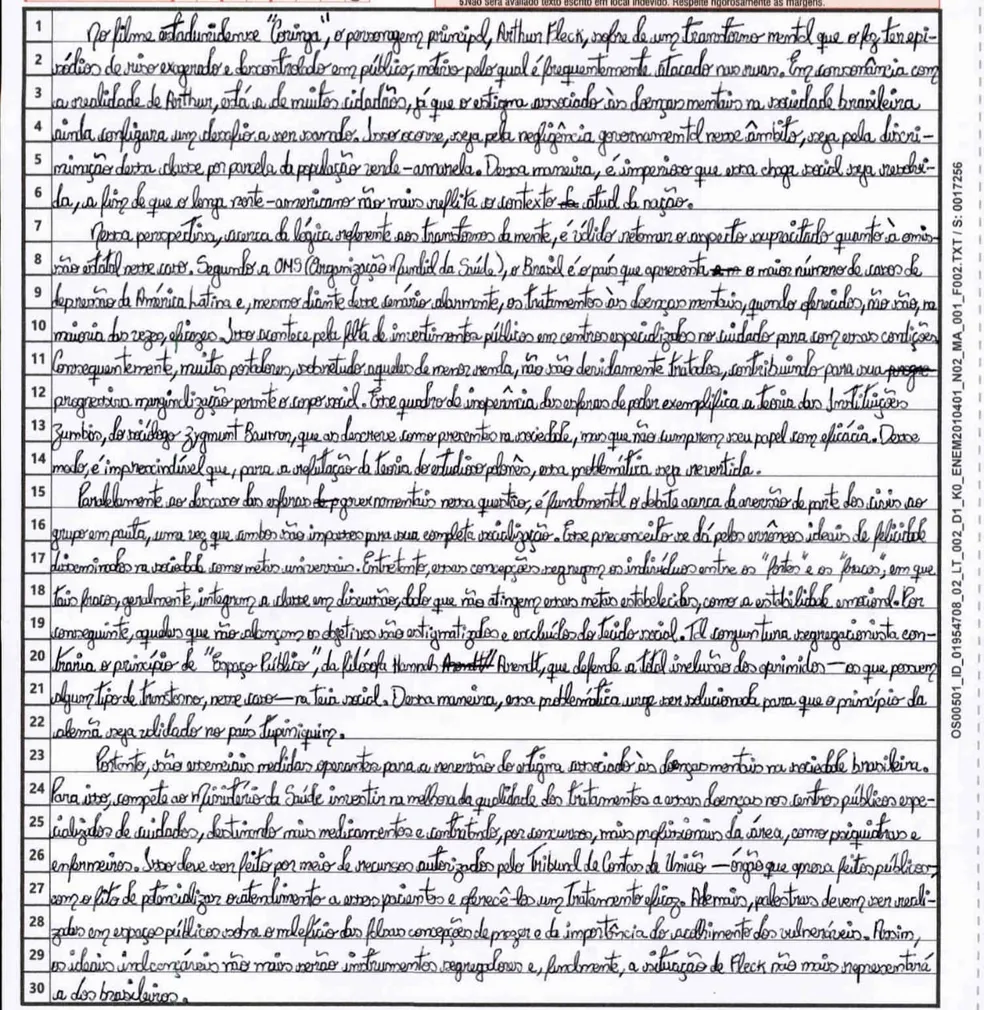 5.Não será avaliado texto escrito em local indevido. Respeite rigorosamente as margens.
1 No filme estadunidense "Coringa", o personagem principal, Arthur Fleck, sofre de um transtorno mental que o faz ter epi-
2 sódios de riso exagerado e descontrolado em público, motivo pelo qual é frequentemente atacado nas ruas. Em consonância com
3 a realidade de Arthur, está a de muitos cidadãos, já que o estigma associado às doenças mentais na sociedade brasileira
4 ainda configura um desafio a ser sanado. Isso ocorre, seja pela negligência governamental nesse âmbito, seja pela discri-
5 minação dessa classe por parcela da população verde-amarela. Dessa maneira, é imperioso que essa chaga social seja resolvi-
6 da, a fim de que o longa norte-americano não mais reflita o contexto atual da nação.
7 Nessa perspectiva, acerca da lógica referente aos transtornos da mente, é válido retomar o aspecto supracitado quanto à omis-
8 são estatal nesse caso. Segundo a OMS (Organização Mundial da Saúde), o Brasil é o país que apresenta o maior número de casos de
9 depressão da América Latina e, mesmo diante desse cenário alarmante, os tratamentos às doenças mentais, quando oferecidos, não são, na
10 maioria das vezes, eficazes. Isso acontece pela falta de investimentos públicos em centros especializados no cuidado para com essas condições.
11 Consequentemente, muitos portadores, sobretudo aqueles de menor renda, não são devidamente tratados, contribuindo para sua progre
12 progressiva marginalização perante o corpo social. Esse quadro de inoperância das esferas de poder exemplifica a teoria das Instituições
13 Zumbis, do sociólogo Zygmunt Bauman, que as descreve como presentes na sociedade, mas que não cumprem seu papel com eficácia. Desse
14 modo, é imprescindível que, para a refutação da teoria do estudioso polonês, essa problemática seja revertida.
15 Paralelamente ao descaso das esferas governamentais nessa questão, é fundamental o debate acerca da aversão de parte dos civis ao
16 grupo em pauta, uma vez que ambos são impasses para sua completa socialização. Esse preconceito se dá pelos errôneos ideais de felicidade
17 disseminados na sociedade como metas universais. Entretanto, essas concepções segregam os indivíduos entre os "fortes" e os "fracos", em que
18 tais fracos, geralmente, integram a classe em discussão, dado que não atingem essas metas estabelecidas, como a estabilidade emocional. Por
19 conseguinte, aqueles que não alcançam os objetivos são estigmatizados e excluídos do tecido social. Tal conjuntura segregacionista con-
20 traria o princípio de "Espaço Público", da filósofa Hannah Arendt" Arendt, que defende a total inclusão dos oprimidos — os que possuem
21 algum tipo de transtorno, nesse caso — na teia social. Dessa maneira, essa problemática urge ser solucionada para que o princípio da
22 alemã seja validado no país tupiniquim.
23 Portanto, são essenciais medidas operantes para a reversão do estigma associado às doenças mentais na sociedade brasileira.
24 Para isso, compete ao Ministério da Saúde investir na melhora da qualidade dos tratamentos a essas doenças nos centros públicos espe-
25 cializados de cuidados, destinando mais medicamentos e contratando, por concursos, mais profissionais da área, como psiquiatras e
26 enfermeiros. Isso deve ser feito por meio de recursos autorizados pelo Tribunal de Contas da União — órgão que aprova feitos públicos,
27 com o fito de potencializar o atendimento a esses pacientes e oferecê-los um tratamento eficaz. Ademais, palestras devem ser reali-
28 zadas em espaços públicos sobre o malefício das falsas concepções de prazer e da importância do acolhimento dos vulneráveis. Assim,
29 os ideais inalcançáveis não mais serão instrumentos segregadores e, finalmente, a situação de Fleck não mais representará
30 a dos brasileiros.
OS00501_ID_01954708_02_LT_002_D1_K0_ENEM2010401_N02_MA_001_F002.TXT / S: 0017256